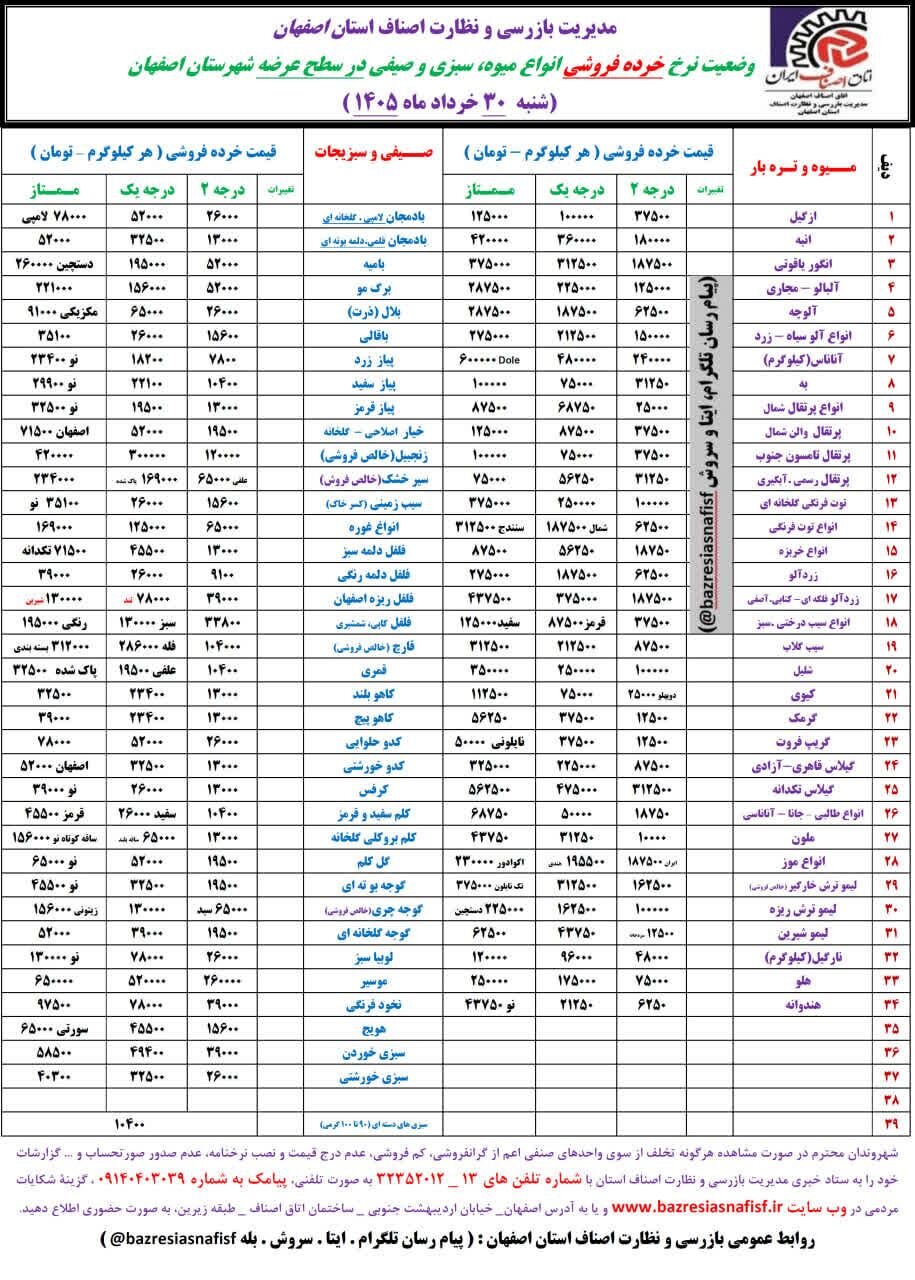 مدیریت بازرسی و نظارت اصناف استان اصفهان
وضعیت نرخ خرده فروشی انواع میوه، سبزی و صیفی در سطح عرضه شهرستان اصفهان
(شنبه ۳۰ خرداد ماه ۱۴۰۵)
اتاق اصناف ایران
اتاق اصناف اصفهان
مدیریت بازرسی و نظارت اصناف
استان اصفهان
ردیف میوه و تره بار قیمت خرده فروشی (هر کیلوگرم – تومان) صیفی و سبزیجات قیمت خرده فروشی (هر کیلوگرم – تومان)
تغییرات درجه ۲ درجه یک ممتاز تغییرات درجه ۲ درجه یک ممتاز
۱ ازگیل ۳۷۵۰۰ ۱۰۰۰۰۰ ۱۲۵۰۰۰ بادمجان لامپی. گلخانه ای ۲۶۰۰۰ ۵۲۰۰۰ ۷۸۰۰۰ لامپی
۲ انبه ۱۸۰۰۰۰ ۳۶۰۰۰۰ ۴۲۰۰۰۰ بادمجان قلمی.دلمه بوته ای ۱۳۰۰۰ ۳۲۵۰۰ ۵۲۰۰۰
۳ انگور یاقوتی ۱۸۷۵۰۰ ۳۱۲۵۰۰ ۳۷۵۰۰۰ بامیه ۵۲۰۰۰ ۱۹۵۰۰۰ دستچین ۲۶۰۰۰۰
۴ آلبالو – مجاری ۱۲۵۰۰۰ ۲۲۵۰۰۰ ۲۸۷۵۰۰ برگ مو ۵۲۰۰۰ ۱۵۶۰۰۰ ۲۲۱۰۰۰
۵ آلوچه ۶۲۵۰۰ ۱۸۷۵۰۰ ۲۸۷۵۰۰ بلال (ذرت) ۲۶۰۰۰ ۶۵۰۰۰ مکزیکی ۹۱۰۰۰
۶ انواع آلو سیاه – زرد ۱۵۰۰۰۰ ۲۱۲۵۰۰ ۲۷۵۰۰۰ باقالی ۱۵۶۰۰ ۲۶۰۰۰ ۳۵۱۰۰
۷ آناناس(کیلوگرم) ۲۴۰۰۰۰ ۴۸۰۰۰۰ ۶۰۰۰۰۰ Dole پیاز زرد ۷۸۰۰ ۱۸۲۰۰ نو ۲۳۴۰۰
۸ به ۳۱۲۵۰ ۷۵۰۰۰ ۱۰۰۰۰۰ پیاز سفید ۱۰۴۰۰ ۲۲۱۰۰ نو ۲۹۹۰۰
۹ انواع پرتقال شمال ۲۵۰۰۰ ۶۸۷۵۰ ۸۷۵۰۰ پیاز قرمز ۱۳۰۰۰ ۱۹۵۰۰ نو ۳۲۵۰۰
۱۰ پرتقال والن شمال ۳۷۵۰۰ ۸۷۵۰۰ ۱۲۵۰۰۰ خیار اصلاحی – گلخانه ۱۹۵۰۰ ۵۲۰۰۰ اصفهان ۷۱۵۰۰
۱۱ پرتقال تامسون جنوب ۳۷۵۰۰ ۷۵۰۰۰ ۱۰۰۰۰۰ زنجبیل(خالص فروشی) ۱۲۰۰۰۰ ۳۰۰۰۰۰ ۴۲۰۰۰۰
۱۲ پرتقال رسمی .آبگیری ۳۱۲۵۰ ۵۶۲۵۰ ۷۵۰۰۰ سیر خشک(خالص فروش) علفی ۶۵۰۰۰ ۱۶۹۰۰۰ پاک شده ۲۳۴۰۰۰
۱۳ توت فرنگی گلخانه ای ۱۰۰۰۰۰ ۲۵۰۰۰۰ ۳۷۵۰۰۰ سیب زمینی (کسر خاک) ۱۵۶۰۰ ۲۶۰۰۰ ۳۵۱۰۰ نو
۱۴ انواع توت فرنگی ۶۲۵۰۰ شمال ۱۸۷۵۰۰ سنندج ۳۱۲۵۰۰ انواع غوره ۶۵۰۰۰ ۱۲۵۰۰۰ ۱۶۹۰۰۰
۱۵ انواع خربزه ۱۸۷۵۰ ۵۶۲۵۰ ۸۷۵۰۰ فلفل دلمه سبز ۱۳۰۰۰ ۴۵۵۰۰ ۷۱۵۰۰ تکدانه
۱۶ زردآلو ۶۲۵۰۰ ۱۸۷۵۰۰ ۲۷۵۰۰۰ فلفل دلمه رنگی ۹۱۰۰ ۲۶۰۰۰ ۳۹۰۰۰
۱۷ زردآلو فلکه ای– کتابی.آصفی ۱۸۷۵۰۰ ۳۷۵۰۰۰ ۴۳۷۵۰۰ فلفل ریزه اصفهان ۳۹۰۰۰ ۷۸۰۰۰ تند ۱۳۰۰۰۰ شیرین
۱۸ انواع سیب درختی .سبز ۳۷۵۰۰ قرمز۸۷۵۰۰ سفید۱۲۵۰۰۰ فلفل کاپی، شمشیری ۳۳۸۰۰ سبز ۱۳۰۰۰۰ رنگی ۱۹۵۰۰۰
(پیام رسان تلگرام، ایتا و سروش @bazresiasnafisf)
۱۹ سیب گلاب ۸۷۵۰۰ ۲۱۲۵۰۰ ۳۱۲۵۰۰ قارچ (خالص فروشی) ۱۰۴۰۰۰ فله ۲۸۶۰۰۰ ۳۱۲۰۰۰ بسته بندی
۲۰ شلیل ۱۰۰۰۰۰ ۲۵۰۰۰۰ ۳۵۰۰۰۰ قمری ۱۰۴۰۰ علفی ۱۹۵۰۰ پاک شده ۳۲۵۰۰
۲۱ کیوی دوپهلو ۲۵۰۰۰ ۷۵۰۰۰ ۱۱۲۵۰۰ کاهو بلند ۱۳۰۰۰ ۲۳۴۰۰ ۳۲۵۰۰
۲۲ گرمک ۱۲۵۰۰ ۳۷۵۰۰ ۵۶۲۵۰ کاهو پیچ ۱۳۰۰۰ ۲۳۴۰۰ ۳۹۰۰۰
۲۳ گریپ فروت ۱۲۵۰۰ ۳۷۵۰۰ نایلونی ۵۰۰۰۰ کدو حلوایی ۲۶۰۰۰ ۵۲۰۰۰ ۷۸۰۰۰
۲۴ گیلاس قاهری–آزادی ۸۷۵۰۰ ۲۲۵۰۰۰ ۳۲۵۰۰۰ کدو خورشتی ۱۳۰۰۰ ۳۲۵۰۰ اصفهان ۵۲۰۰۰
۲۵ گیلاس تکدانه ۳۱۲۵۰۰ ۴۷۵۰۰۰ ۵۶۲۵۰۰ کرفس ۱۳۰۰۰ ۲۶۰۰۰ نو ۳۹۰۰۰
۲۶ انواع طالبی .. جانا – آناناسی ۱۸۷۵۰ ۵۰۰۰۰ ۶۸۷۵۰ کلم سفید و قرمز ۱۰۴۰۰ سفید ۲۶۰۰۰ قرمز ۴۵۵۰۰
۲۷ ملون ۱۰۰۰۰ ۳۱۲۵۰ ۴۳۷۵۰ کلم بروکلی گلخانه ۱۳۰۰۰ ۶۵۰۰۰ ساقه بلند ساقه کوتاه نو ۱۵۶۰۰۰
۲۸ انواع موز ایران ۱۸۷۵۰۰ ۱۹۵۵۰۰ هندی اکوادور ۲۳۰۰۰۰ گل کلم ۱۹۵۰۰ ۵۲۰۰۰ نو ۶۵۰۰۰
۲۹ لیمو ترش خارگیر(خالص فروشی) ۱۶۲۵۰۰ ۳۱۲۵۰۰ تک نایلون ۳۷۵۰۰۰ گوجه بو ته ای ۱۹۵۰۰ ۳۲۵۰۰ نو ۴۵۵۰۰
۳۰ لیمو ترش ریزه ۱۰۰۰۰۰ ۱۶۲۵۰۰ ۲۲۵۰۰۰ دستچین گوجه چری(خالص فروشی) ۶۵۰۰۰ سبد ۱۳۰۰۰۰ زیتونی ۱۵۶۰۰۰
۳۱ لیمو شیرین ۱۲۵۰۰ سردخانه ۴۳۷۵۰ ۶۲۵۰۰ گوجه گلخانه ای ۱۹۵۰۰ ۳۹۰۰۰ ۵۲۰۰۰
۳۲ نارگیل(کیلوگرم) ۴۸۰۰۰ ۹۶۰۰۰ ۱۲۰۰۰۰ لوبیا سبز ۲۶۰۰۰ ۷۸۰۰۰ نو ۱۳۰۰۰۰
۳۳ هلو ۷۵۰۰۰ ۱۷۵۰۰۰ ۲۵۰۰۰۰ موسیر ۲۶۰۰۰۰ ۵۲۰۰۰۰ ۶۵۰۰۰۰
۳۴ هندوانه ۶۲۵۰ ۲۱۲۵۰ نو ۴۳۷۵۰ نخود فرنگی ۳۹۰۰۰ ۷۸۰۰۰ ۹۷۵۰۰
۳۵ هویج ۱۵۶۰۰ ۴۵۵۰۰ سورتی ۶۵۰۰۰
۳۶ سبزی خوردن ۳۹۰۰۰ ۴۹۴۰۰ ۵۸۵۰۰
۳۷ سبزی خورشتی ۲۶۰۰۰ ۳۲۵۰۰ ۴۰۳۰۰
۳۸
۳۹ سبزی های دسته ای (۹۰ تا ۱۰۰ گرمی) ۱۰۴۰۰
شهروندان محترم در صورت مشاهده هرگونه تخلف از سوی واحدهای صنفی اعم از گرانفروشی، کم فروشی، عدم درج قیمت و نصب نرخنامه، عدم صدور صورتحساب و ... گزارشات
خود را به ستاد خبری مدیریت بازرسی و نظارت اصناف استان با شماره تلفن های ۱۳ _ ۳۲۳۵۲۰۱۲ به صورت تلفنی، پیامک به شماره ۰۹۱۴۰۴۰۳۰۳۹ ، گزینهٔ شکایات
مردمی در وب سایت www.bazresiasnafisf.ir و یا به آدرس اصفهان_ خیابان اردیبهشت جنوبی _ ساختمان اتاق اصناف _ طبقه زیرین، به صورت حضوری اطلاع دهید.
روابط عمومی بازرسی و نظارت اصناف استان اصفهان : ( پیام رسان تلگرام . ایتا . سروش . بله bazresiasnafisf@ )